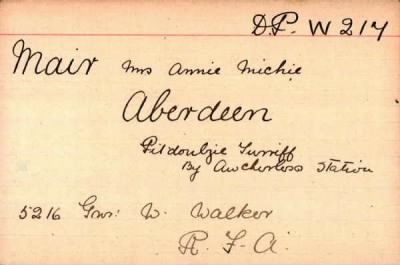 D.P. W 217
Mair Mrs Annie Michie
Aberdeen
Pitdoulzie Turriff
By Auchterless Station
5216 Gnr: W. Walker
R. F. A.